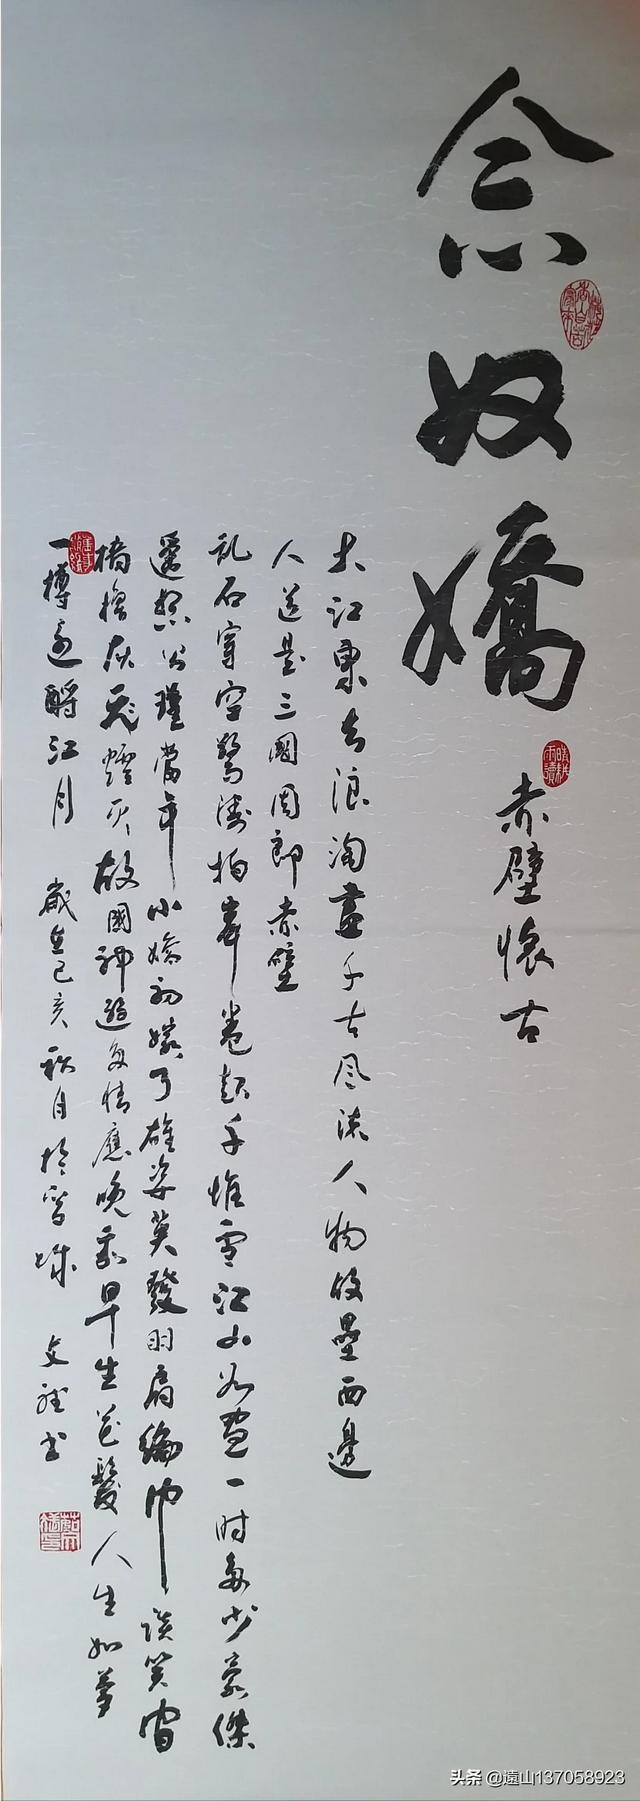 念奴嬌
赤壁懷古
大江東去浪淘盡千古風流人物故壘西邊
人道是三國周郎赤壁
乱石穿空驚濤拍岸卷起千堆雪江山如畫一時多少豪傑
遙想公瑾當年小嬌初嫁了雄姿英發羽扇綸巾談笑間
檣櫓灰飛煙灭故國神遊多情應晚我早生花髮人生如夢
一樽還酹江月 歲在己亥秋月於 文 書
晴耕雨讀
头条 @遠山137058923